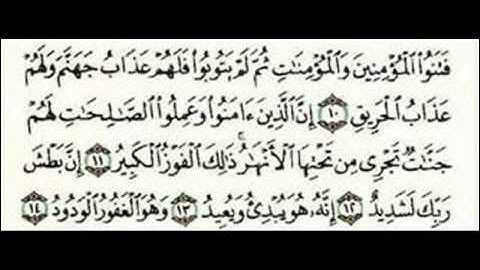 فَتَنُوا۟ ٱلْمُؤْمِنِينَ وَٱلْمُؤْمِنَـٰتِ ثُمَّ لَمْ يَتُوبُوا۟ فَلَهُمْ عَذَابُ جَهَنَّمَ وَلَهُمْ
عَذَابُ ٱلْحَرِيقِ ١٠ إِنَّ ٱلَّذِينَ ءَامَنُوا۟ وَعَمِلُوا۟ ٱلصَّـٰلِحَـٰتِ لَهُمْ
جَنَّـٰتٌ تَجْرِى مِن تَحْتِهَا ٱلْأَنْهَـٰرُ ۚ ذَٰلِكَ ٱلْفَوْزُ ٱلْكَبِيرُ ١١ إِنَّ بَطْشَ
رَبِّكَ لَشَدِيدٌ ١٢ إِنَّهُۥ هُوَ يُبْدِئُ وَيُعِيدُ ١٣ وَهُوَ ٱلْغَفُورُ ٱلْوَدُودُ ١٤